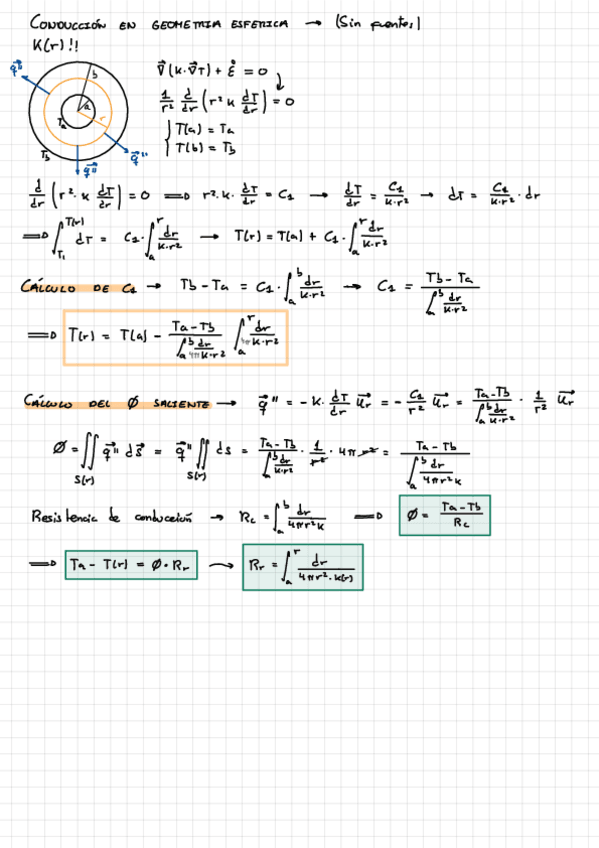 CONDUCCIÓN EN GEOMETRIA ESFERICA → (Sin fuentes)
K(r)!!
q⃗" b a r Ta Tb q⃗" q⃗"
∇⃗(K·∇⃗T) + ε̇ = 0
1/r² d/dr (r² K dT/dr) = 0
{ T(a) = Ta
T(b) = Tb
d/dr (r²· K dT/dr) = 0 ⟹ r²·K· dT/dr = C1 → dT/dr = C1/K·r² → dT = C1/K·r² · dr
⟹ ∫_{T1}^{T(r)} dT = C1·∫_a^r dr/K·r² → T(r) = T(a) + C1·∫_a^r dr/K·r²
CÁLCULO DE C1 → Tb-Ta = C1·∫_a^b dr/K·r² → C1 = Tb-Ta / ∫_a^b dr/K·r²
⟹ T(r) = T(a) - Ta-Tb / ∫_a^b dr/4πK·r² ∫_a^r dr/4πK·r²
CÁLCULO DEL Ø SALIENTE → q⃗" = -K· dT/dr u⃗r = - C1/r² u⃗r = Ta-Tb / ∫_a^b dr/K·r² · 1/r² u⃗r
Ø = ∬_{S(r)} q⃗" dS⃗ = q⃗" ∬_{S(r)} ds = Ta-Tb / ∫_a^b dr/K·r² · 1/r² · 4πr² = Ta-Tb / ∫_a^b dr/4πr²K
Resistencia de conducción → Rc = ∫_a^b dr/4πr²K ⟹ Ø = Ta-Tb/Rc
⟹ Ta - T(r) = Ø·Rr → Rr = ∫_a^r dr/4πr²·K(r)